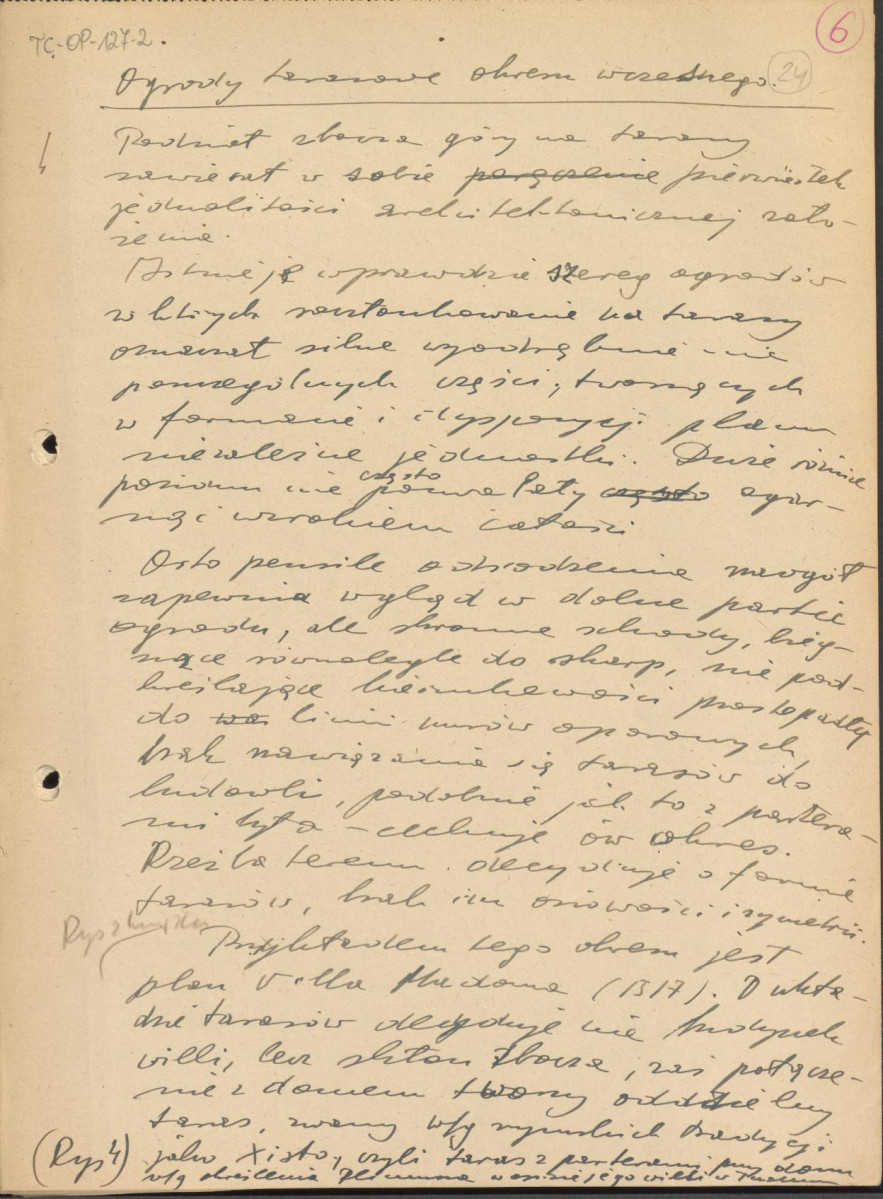 TC-OP-127-2.
6
24
Ogrody tarasowe okresu wczesnego.
Podział zbocza góry na tarasy
zawierał w sobie połączenie pierwiastek
jednolitości architektonicznej zało-
żenia.
Istnieją wprawdzie szereg ogrodów
w których rozczłonkowanie na tarasy
oznaczał silne wyodrębnienie
poszczególnych części, tworzących
w formacie i dyspozycji planu
niezależne jednostki. Duże różnice
poziomu nie często pozwalały często ogar-
nąć wzrokiem całości
Orto pensile odrodzenia naogół
zapewnia wgląd w dolne partie
ogrodu, ale skromne schody, bieg-
nące równolegle do skarp, nie pod-
kreślające kierunkowości prostopadłej
do linii murów oporowych
brak nawiązania się tarasów do
budowli, podobnie jak to z partera-
mi było – cechuje ów okres.
Rzeźba terenu decyduje o formie
tarasów, brak im osiowości i symetrii.
Przykładem tego okresu jest
plan Villa Madama (1517). O ukła-
dzie tarasów decyduje nie budynek
willi, lecz skłon zbocza, zaś połącze-
nie z domem tworzy oddzielny
taras, zwany wg rzymskich tradycji
(Rys 4) jako Xisto, czyli taras z parterami przy domu
wg określenia Pliniusza w swojej willi w